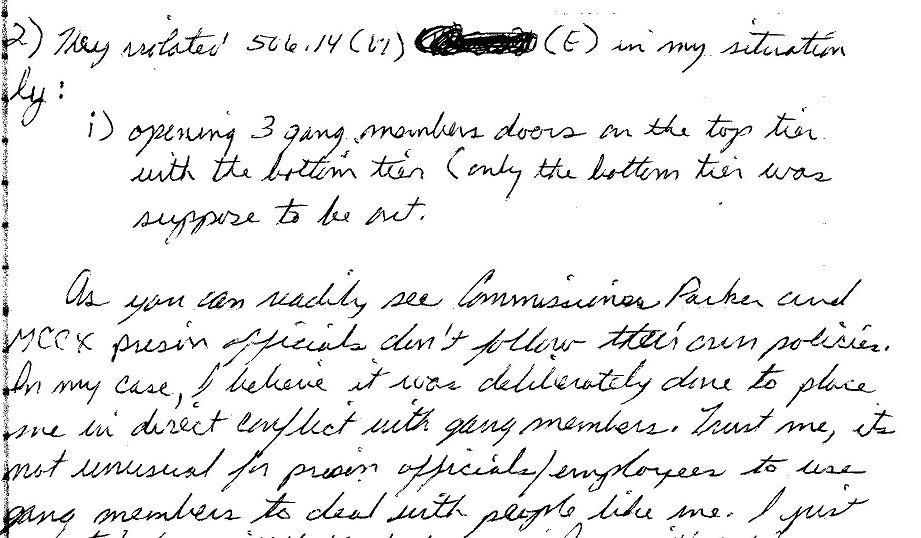 2) They violated 506.14 (VI) (E) in my situation
by:
i) opening 3 gang members doors on the top tier
with the bottom tier (only the bottom tier was
suppose to be out.
As you can readily see Commissioner Parker and
MCCX prison officials don't follow their own policies.
In my case, I believe it was deliberately done to place
me in direct conflict with gang members. Trust me, its
not unusual for prison officials/employees to use
gang members to deal with people like me. I just